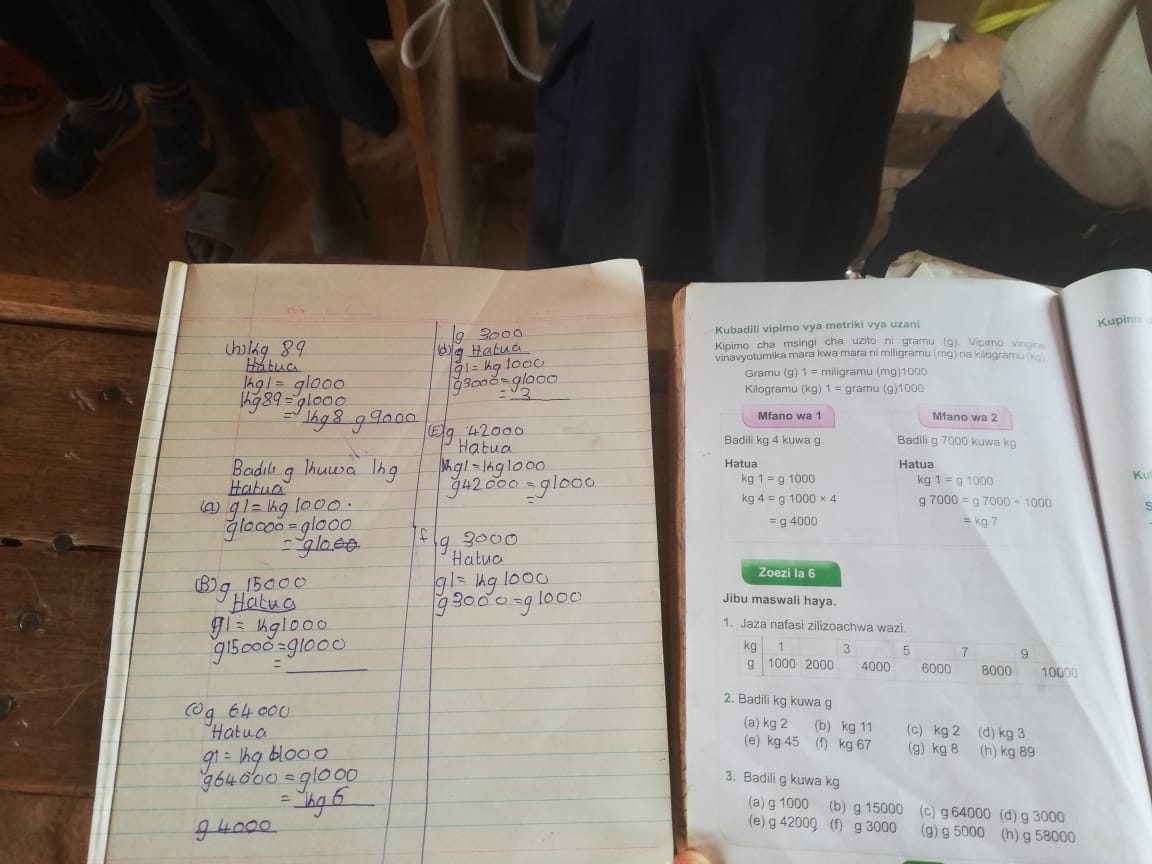 (h) kg 89
Hatua
kg1 = g1000
kg89 = g1000
= kg8 g9000
Badili g kuwa kg
Hatua
(a) g1 = kg 1000.
g10000 = g1000
(B) g 15000
Hatua
g1 = kg1000
g15000 = g1000
=
(c) g 64000
Hatua
g1 = kg 1000
g64000 = g1000
= kg 6
g 4000
g 3000
(d) g Hatua
g1 = kg 1000
g3000 = g1000
= 3
(E) g 42000
Hatua
kg1 = kg1000
g42000 = g1000
=
f g 3000
Hatua
g1 = kg 1000
g3000 = g1000
Kubadili vipimo vya metriki vya uzani
Kipimo cha msingi cha uzito ni gramu (g). Vipimo vingine
vinavyotumika mara kwa mara ni miligramu (mg) na kilogramu (kg).
Gramu (g) 1 = miligramu (mg)1000
Kilogramu (kg) 1 = gramu (g)1000
Mfano wa 1
Badili kg 4 kuwa g
Hatua
kg 1 = g 1000
kg 4 = g 1000 × 4
= g 4000
Mfano wa 2
Badili g 7000 kuwa kg
Hatua
kg 1 = g 1000
g 7000 = g 7000 ÷ 1000
= kg 7
Zoezi la 6
Jibu maswali haya.
1. Jaza nafasi zilizoachwa wazi.
kg 1 3 5 7 9
g 1000 2000 4000 6000 8000 10000
2. Badili kg kuwa g
(a) kg 2 (b) kg 11 (c) kg 2 (d) kg 3
(e) kg 45 (f) kg 67 (g) kg 8 (h) kg 89
3. Badili g kuwa kg
(a) g 1000 (b) g 15000 (c) g 64000 (d) g 3000
(e) g 42000 (f) g 3000 (g) g 5000 (h) g 58000